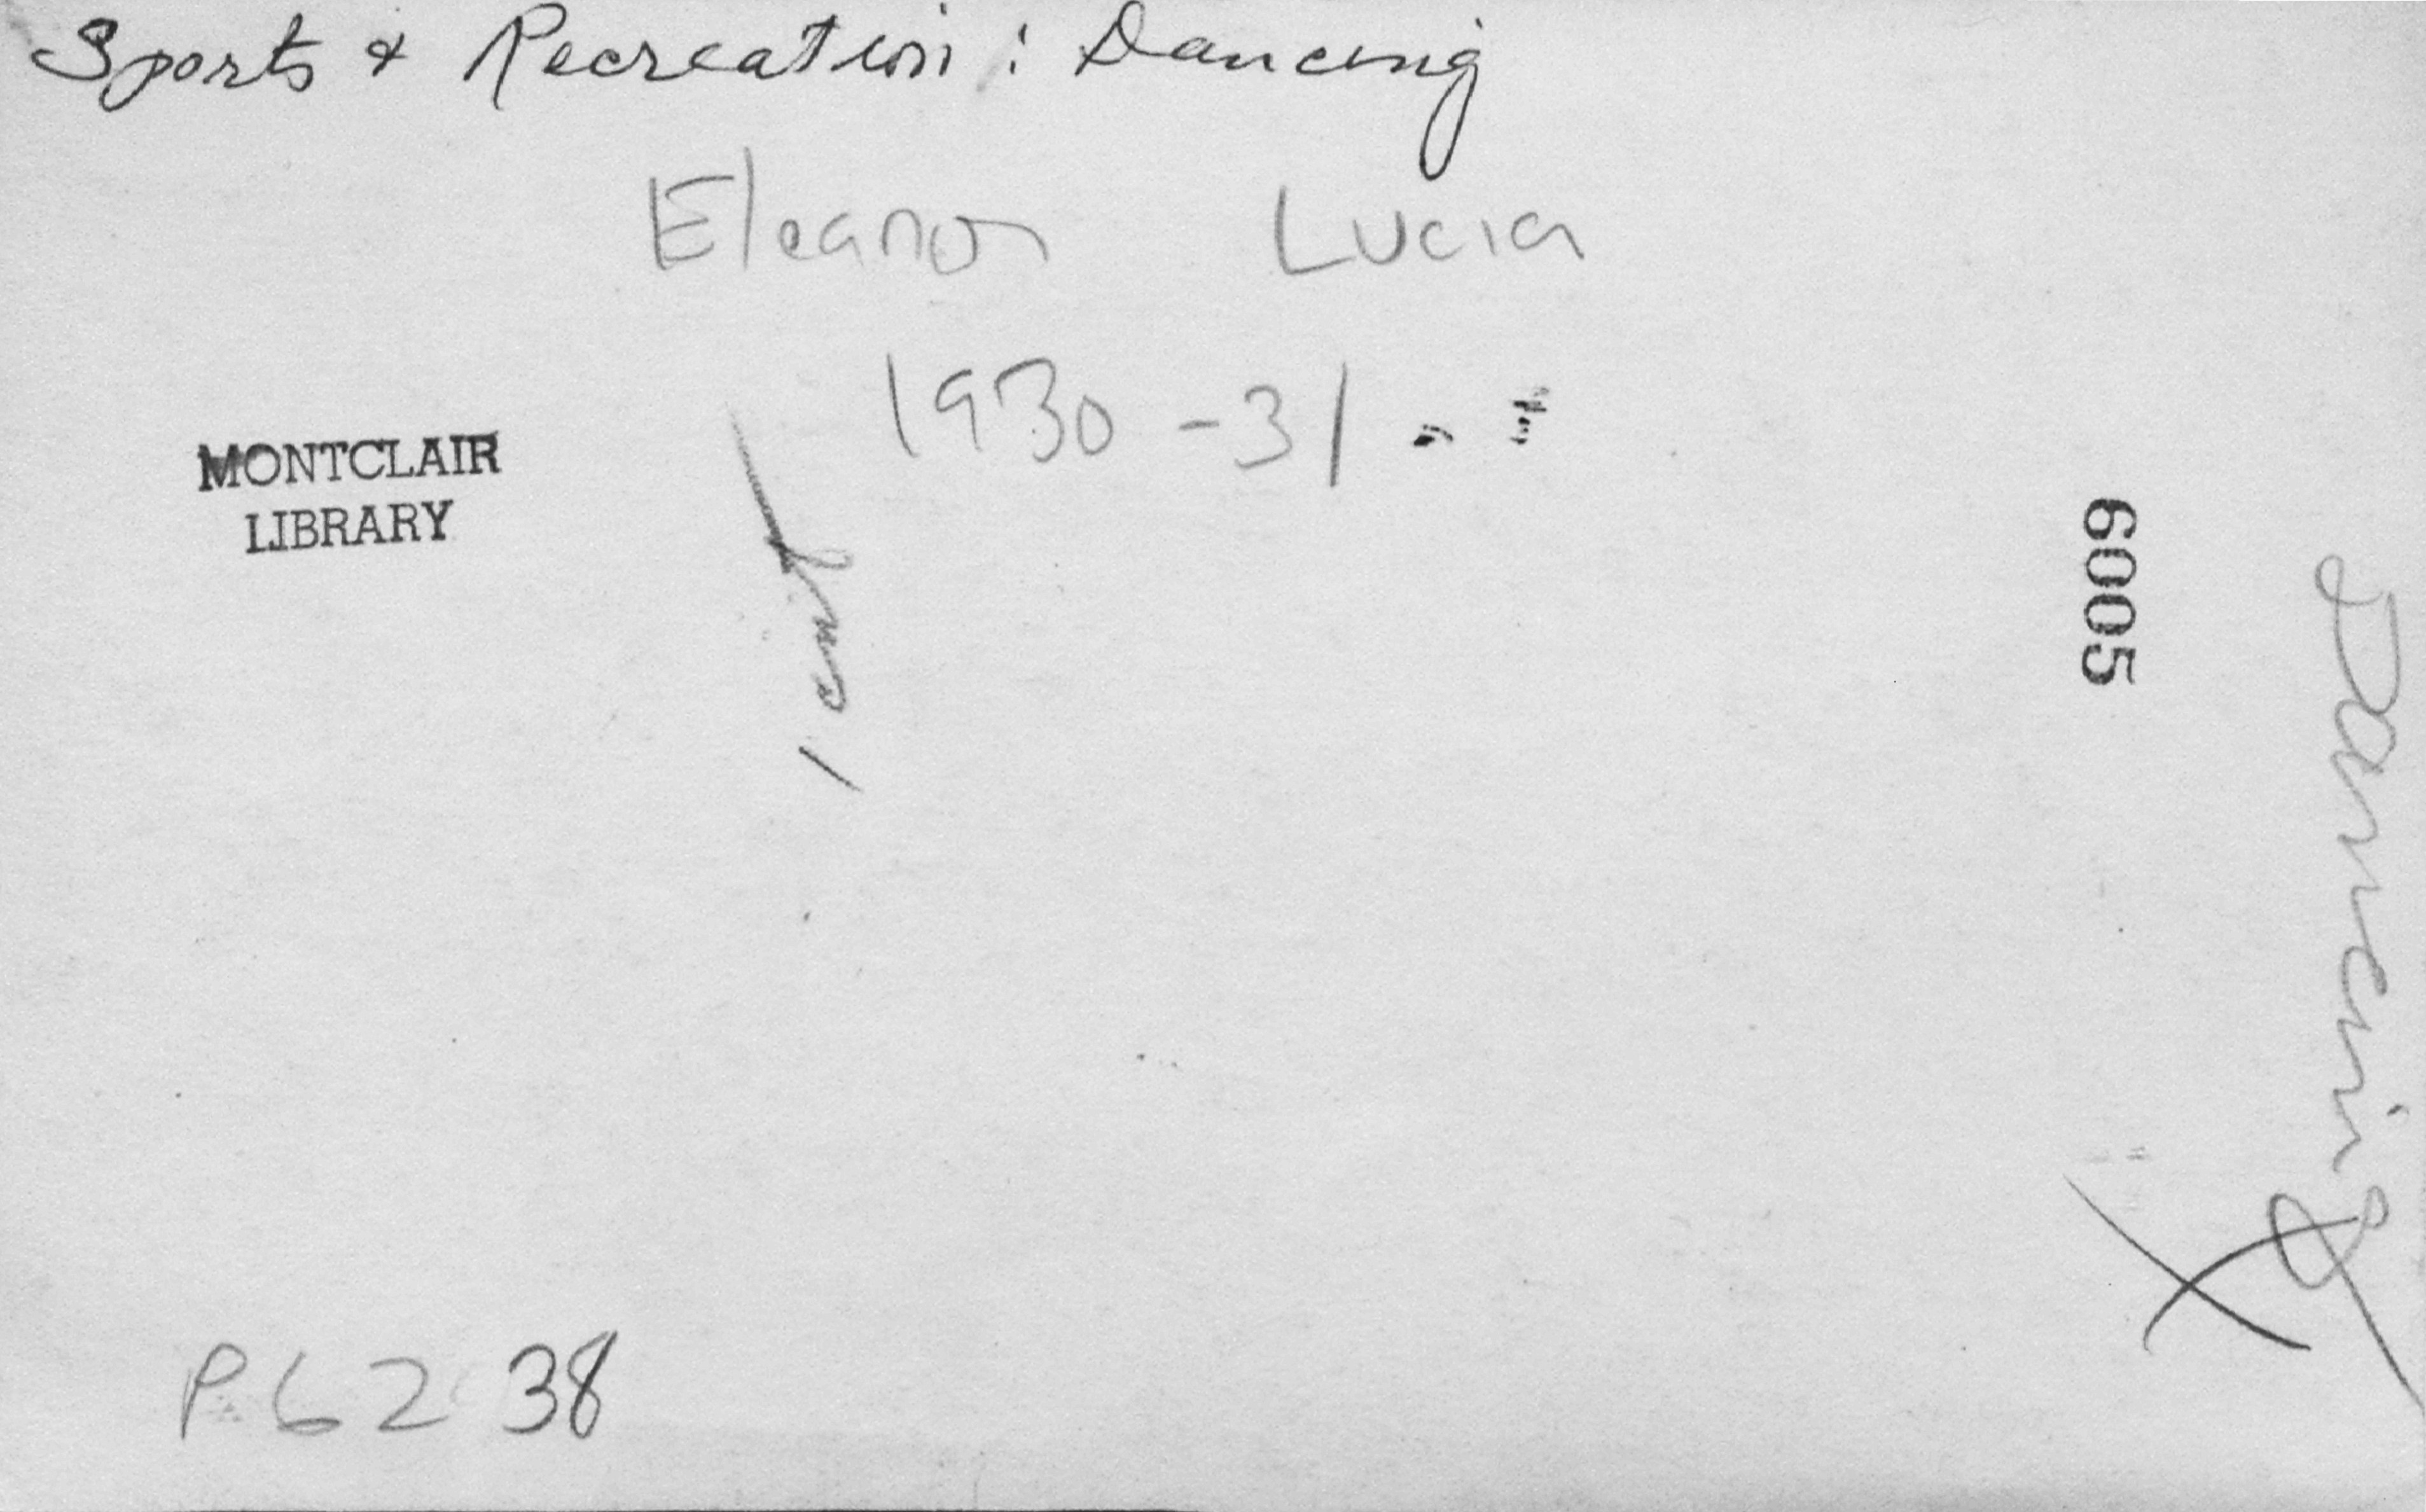 Sports & Recreation: Dancing
Eleanor Lucia
1930-31
MONTCLAIR
LIBRARY
6005
Dancing
P. 62 38